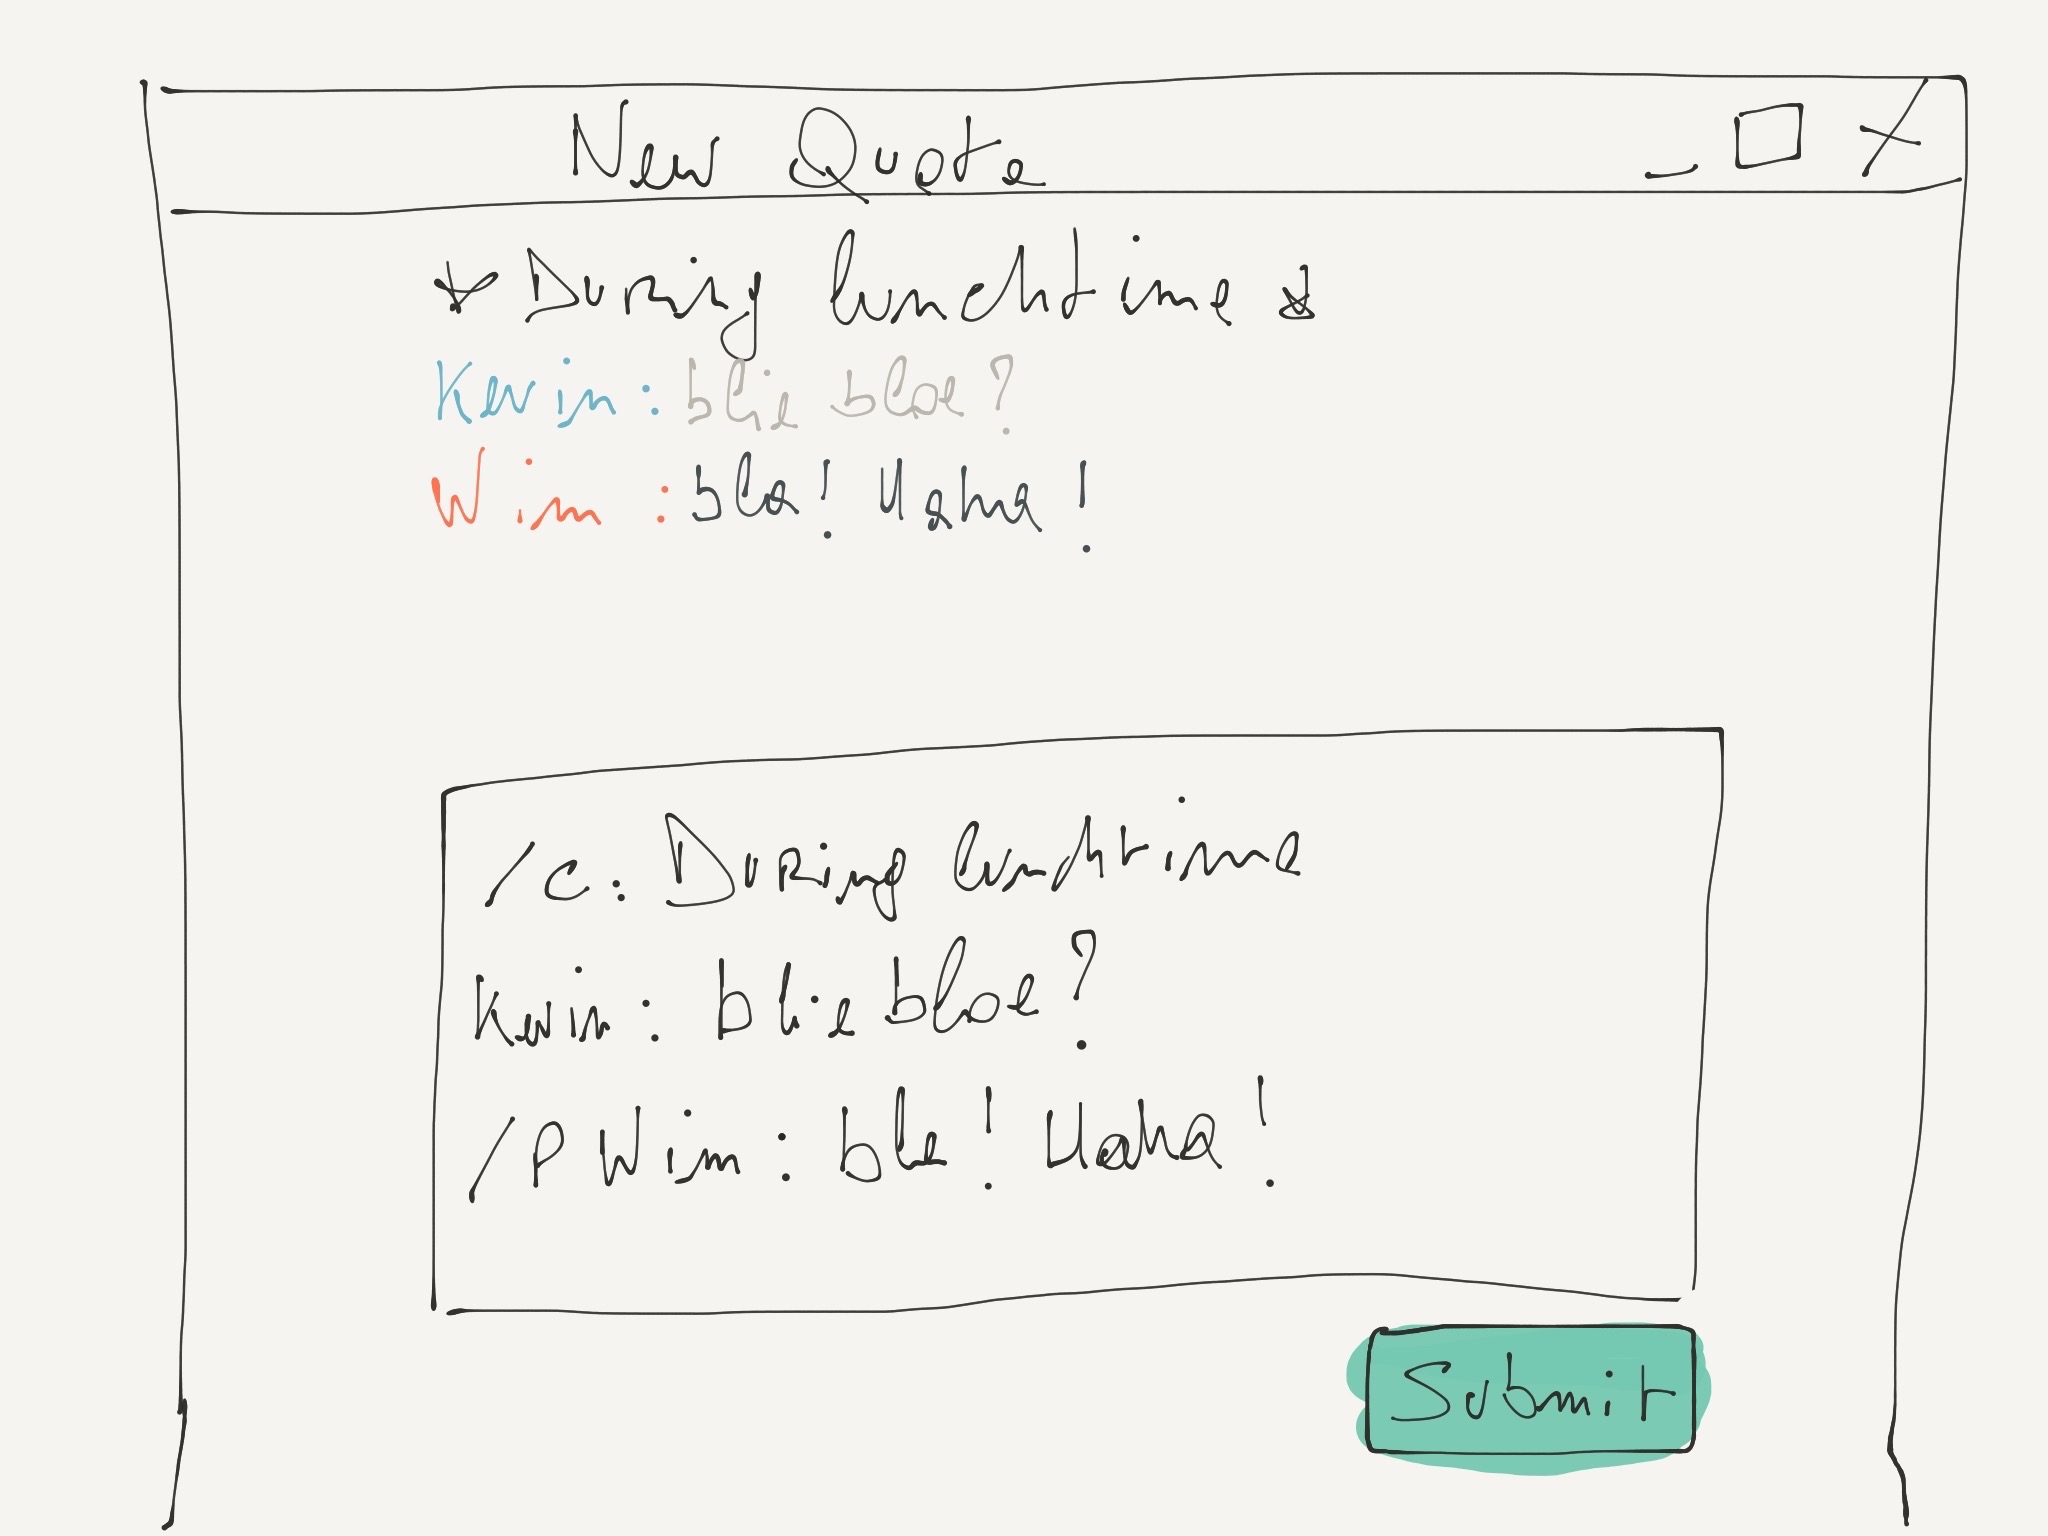 New Quote _ □ X
* During lunchtime *
Kevin: blie bloe?
Wim: bla! Haha!
/c: During lunchtime
Kevin: blie bloe?
/p Wim: bla! Haha!
Submit